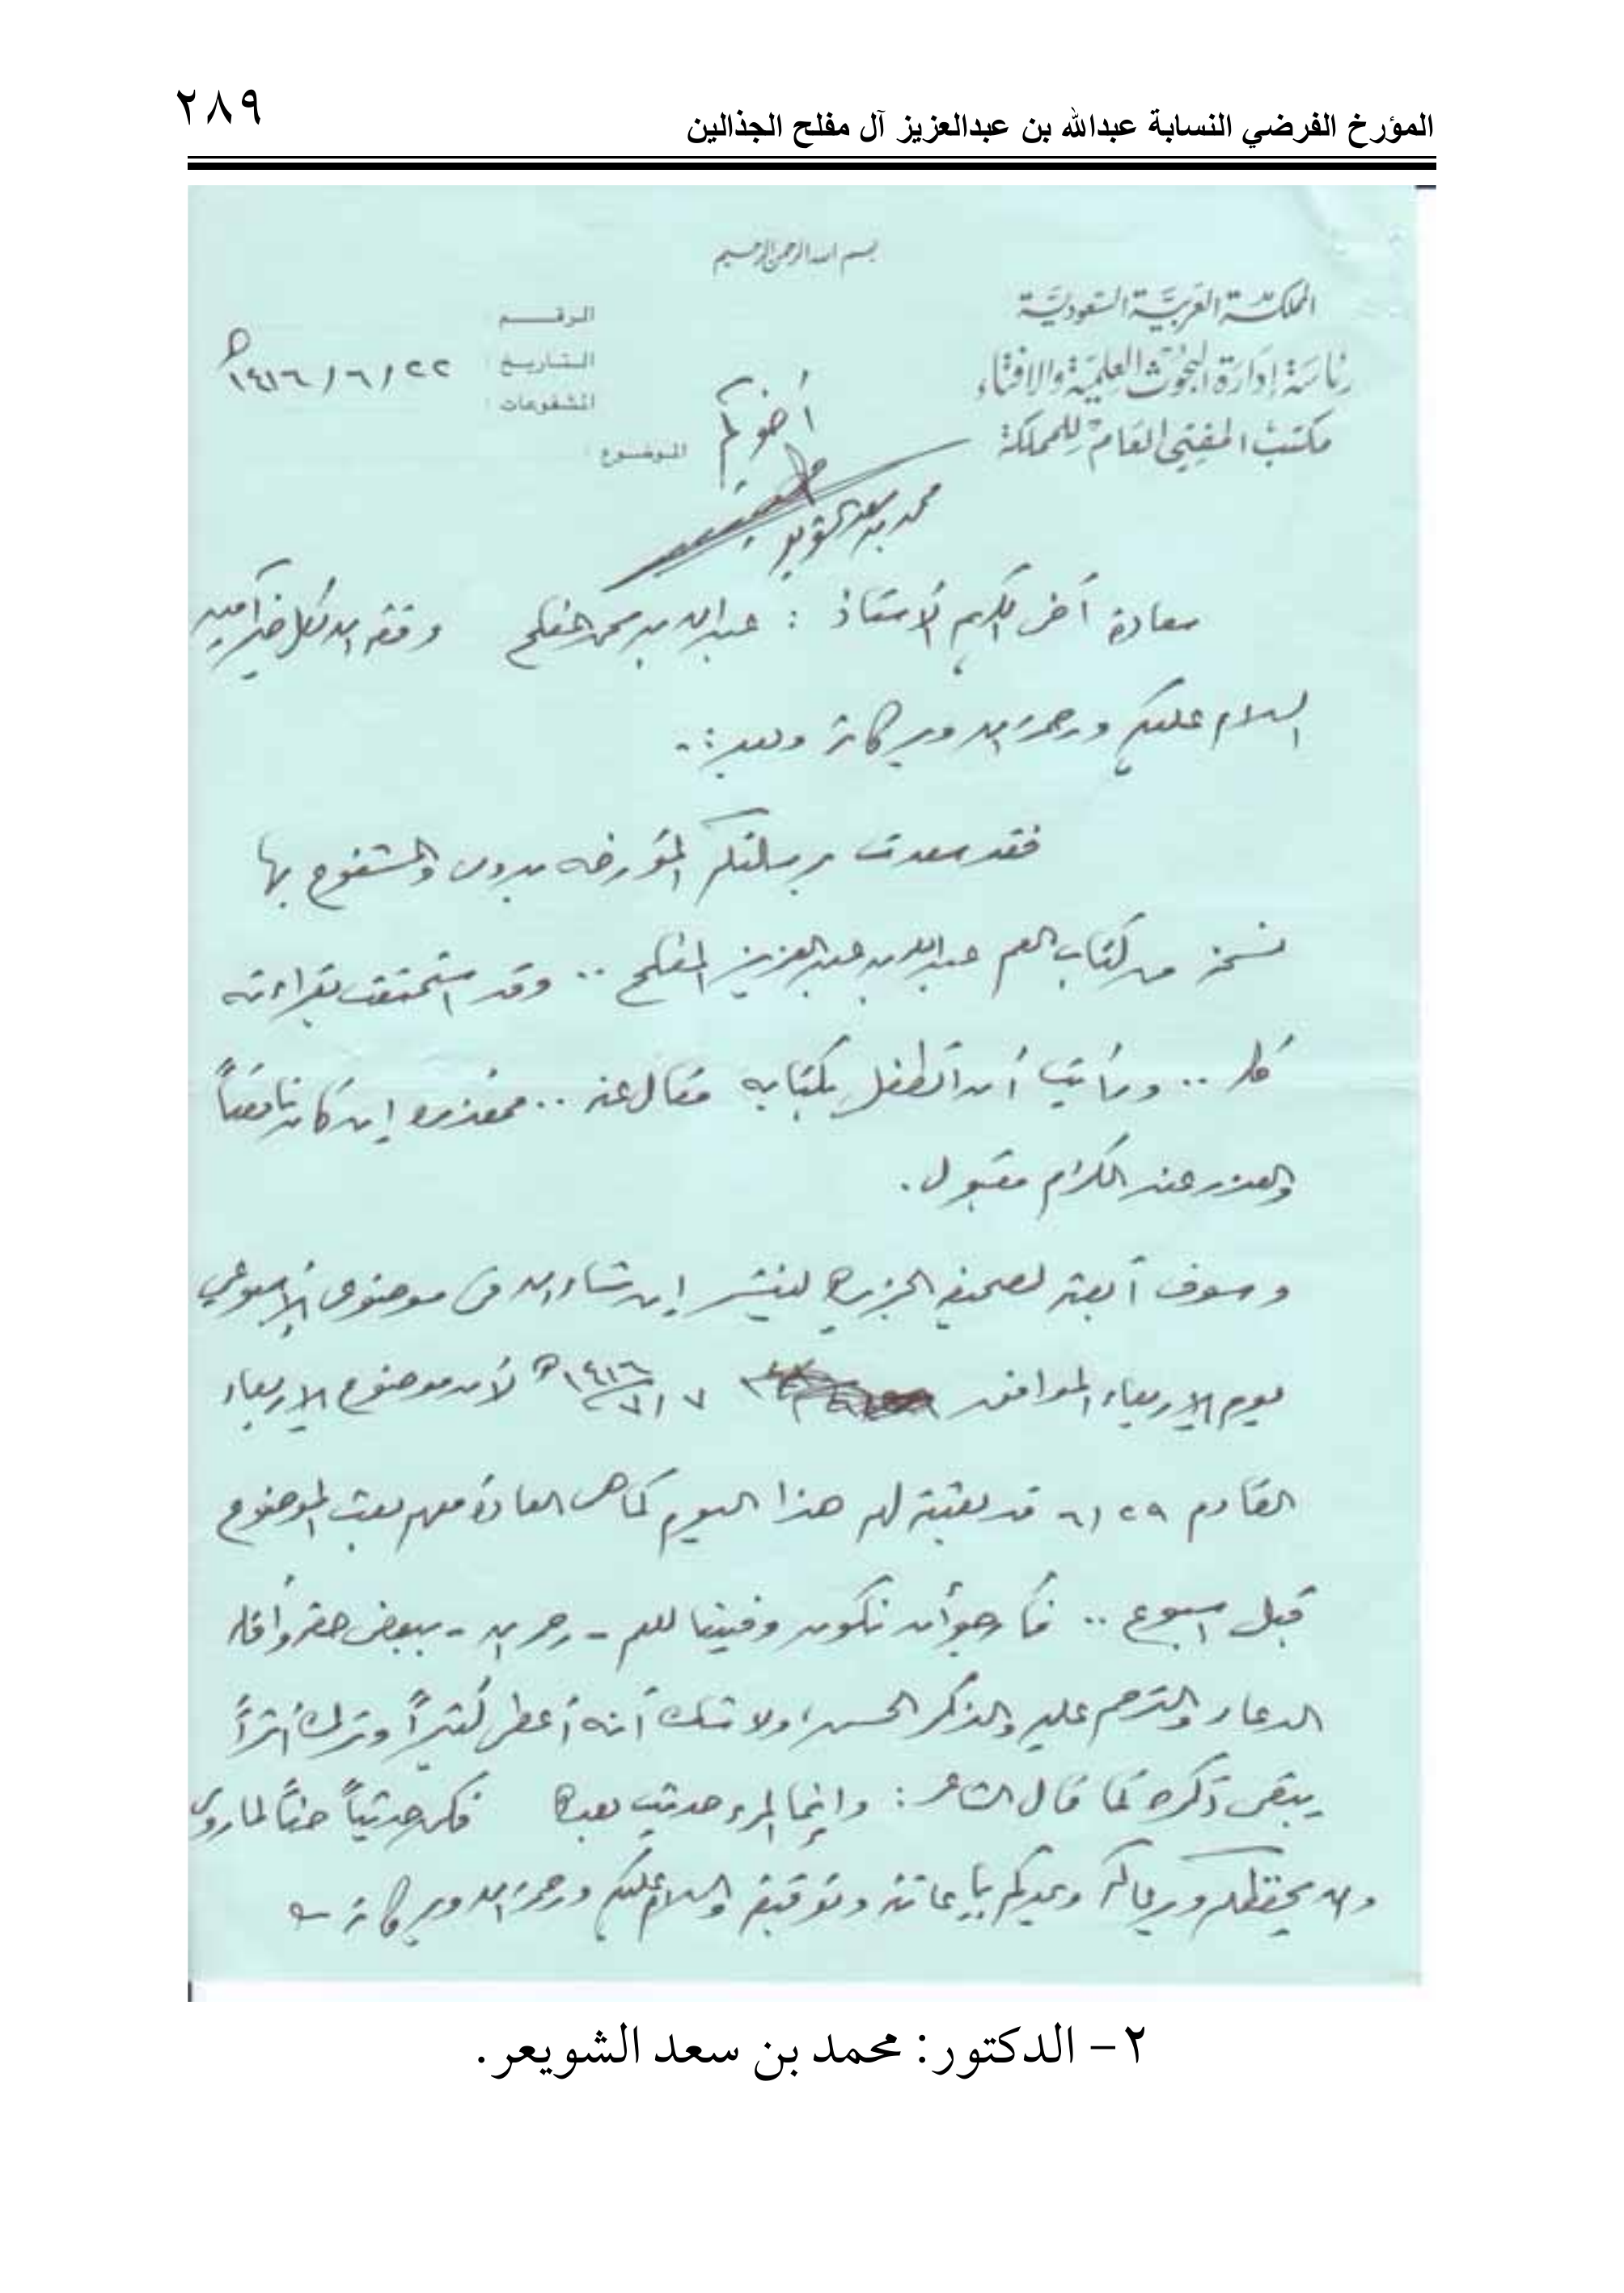 المؤرخ الفرضي النسابة عبدالله بن عبدالعزيز آل مفلح الجذالين
٢٨٩
بسم الله الرحمن الرحيم
المملكة العربية السعودية
رئاسة إدارة البحوث العلمية والإفتاء
مكتب المفتي العام للمملكة
الرقم
التاريخ : ٢٢ / ٦ / ١٤١٦هـ
المشفوعات :
الموضوع :
أخوكم
محمد بن سعد الشويعر
سعادة أخي الكريم الأستاذ : عبدالله بن محمد المفلح وفقه الله لكل خير آمين
السلام عليكم ورحمة الله وبركاته وبعد :-
فقد سعدت برسالتكم المؤرخه بدون والمشفوع بها
نسخة من كتاب العم عبدالله بن عبدالعزيز المفلح .. وقد استمتعت بقراءته
كله .. ورأيت أن أتطفل بكتابه مقال عنه .. فمعذرة إن كان ناقصاً
والعذر عند الكرام مقبول .
وسوف أبعثه لصحيفة الجزيرة لينشر إن شاء الله في موضوعي الأسبوعي
يوم الاربعاء الموافق ٧ / ٧ / ١٤١٦هـ لأن موضوع الاربعاء
القادم ٢٩ / ٦ قد بعثته لهم هذا اليوم كما هي العادة معهم بعث الموضوع
قبل اسبوع .. فأرجو أن نكون وفينا للعم - رحمه الله - ببعض حقه وأقله
الدعاء والترحم عليه والذكر الحسن، ولا شك أنه أعطى كثيراً وترك أثراً
يبقى ذكره كما قال الشاعر : وإنما المرء حديث بعده فكن حديثاً حسناً لمن روى
والله يحفظكم ويرعاكم ويمدكم بإعانته وتوفيقه والسلام عليكم ورحمة الله وبركاته
٢- الدكتور: محمد بن سعد الشويعر.